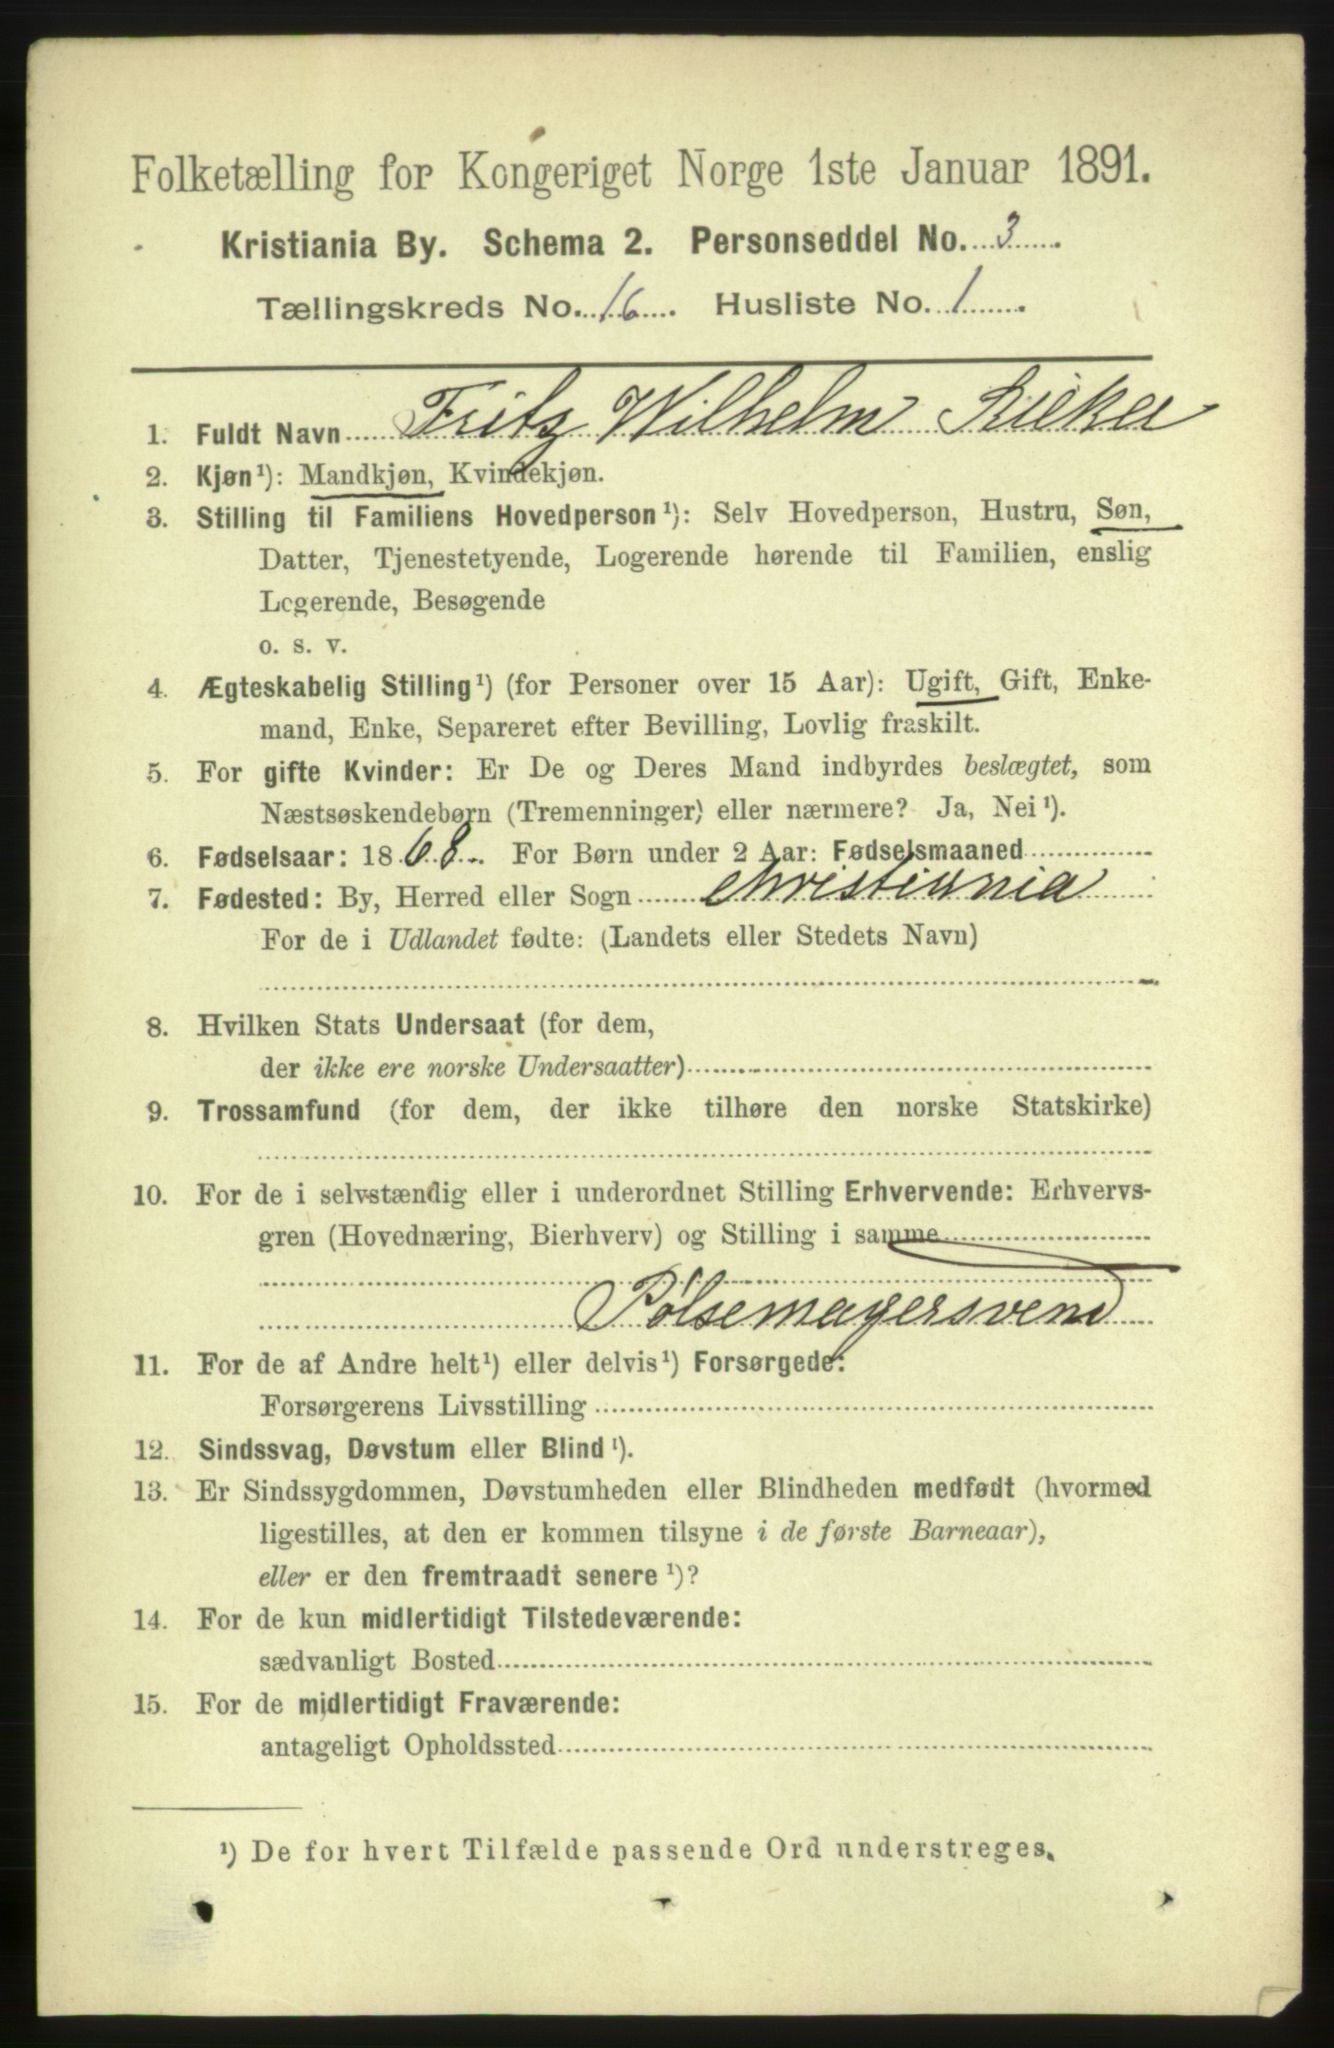 Folketælling for Kongeriget Norge 1ste Januar 1891.
Kristiania By. Schema 2. Personseddel No. 3.
Tællingskreds No. 16. Husliste No. 1.
1. Fuldt Navn Fritz Wilhelm
2. Kjøn¹): Mandkjøn, Kvindekjøn.
3. Stilling til Familiens Hovedperson¹): Selv Hovedperson, Hustru, Søn,
Datter, Tjenestetyende, Logerende hørende til Familien, enslig
Logerende, Besøgende
o. s. v.
4. Ægteskabelig Stilling¹) (for Personer over 15 Aar): Ugift, Gift, Enke-
mand, Enke, Separeret efter Bevilling, Lovlig fraskilt.
5. For gifte Kvinder: Er De og Deres Mand indbyrdes beslægtet, som
Næstsøskendebørn (Tremenninger) eller nærmere? Ja, Nei¹).
6. Fødselsaar: 1868. For Børn under 2 Aar: Fødselsmaaned
7. Fødested: By, Herred eller Sogn Christiania
For de i Udlandet fødte: (Landets eller Stedets Navn)
8. Hvilken Stats Undersaat (for dem,
der ikke ere norske Undersaatter)
9. Trossamfund (for dem, der ikke tilhøre den norske Statskirke)
10. For de i selvstændig eller i underordnet Stilling Erhvervende: Erhvervs-
gren (Hovednæring, Bierhverv) og Stilling i samme
Pølsemagersvend
11. For de af Andre helt¹) eller delvis¹) Forsørgede:
Forsørgerens Livsstilling
12. Sindssvag, Døvstum eller Blind¹).
13. Er Sindssygdommen, Døvstumheden eller Blindheden medfødt (hvormed
ligestilles, at den er kommen tilsyne i de første Barneaar),
eller er den fremtraadt senere¹)?
14. For de kun midlertidigt Tilstedeværende:
sædvanligt Bosted
15. For de midlertidigt Fraværende:
antageligt Opholdssted
¹) De for hvert Tilfælde passende Ord understreges.